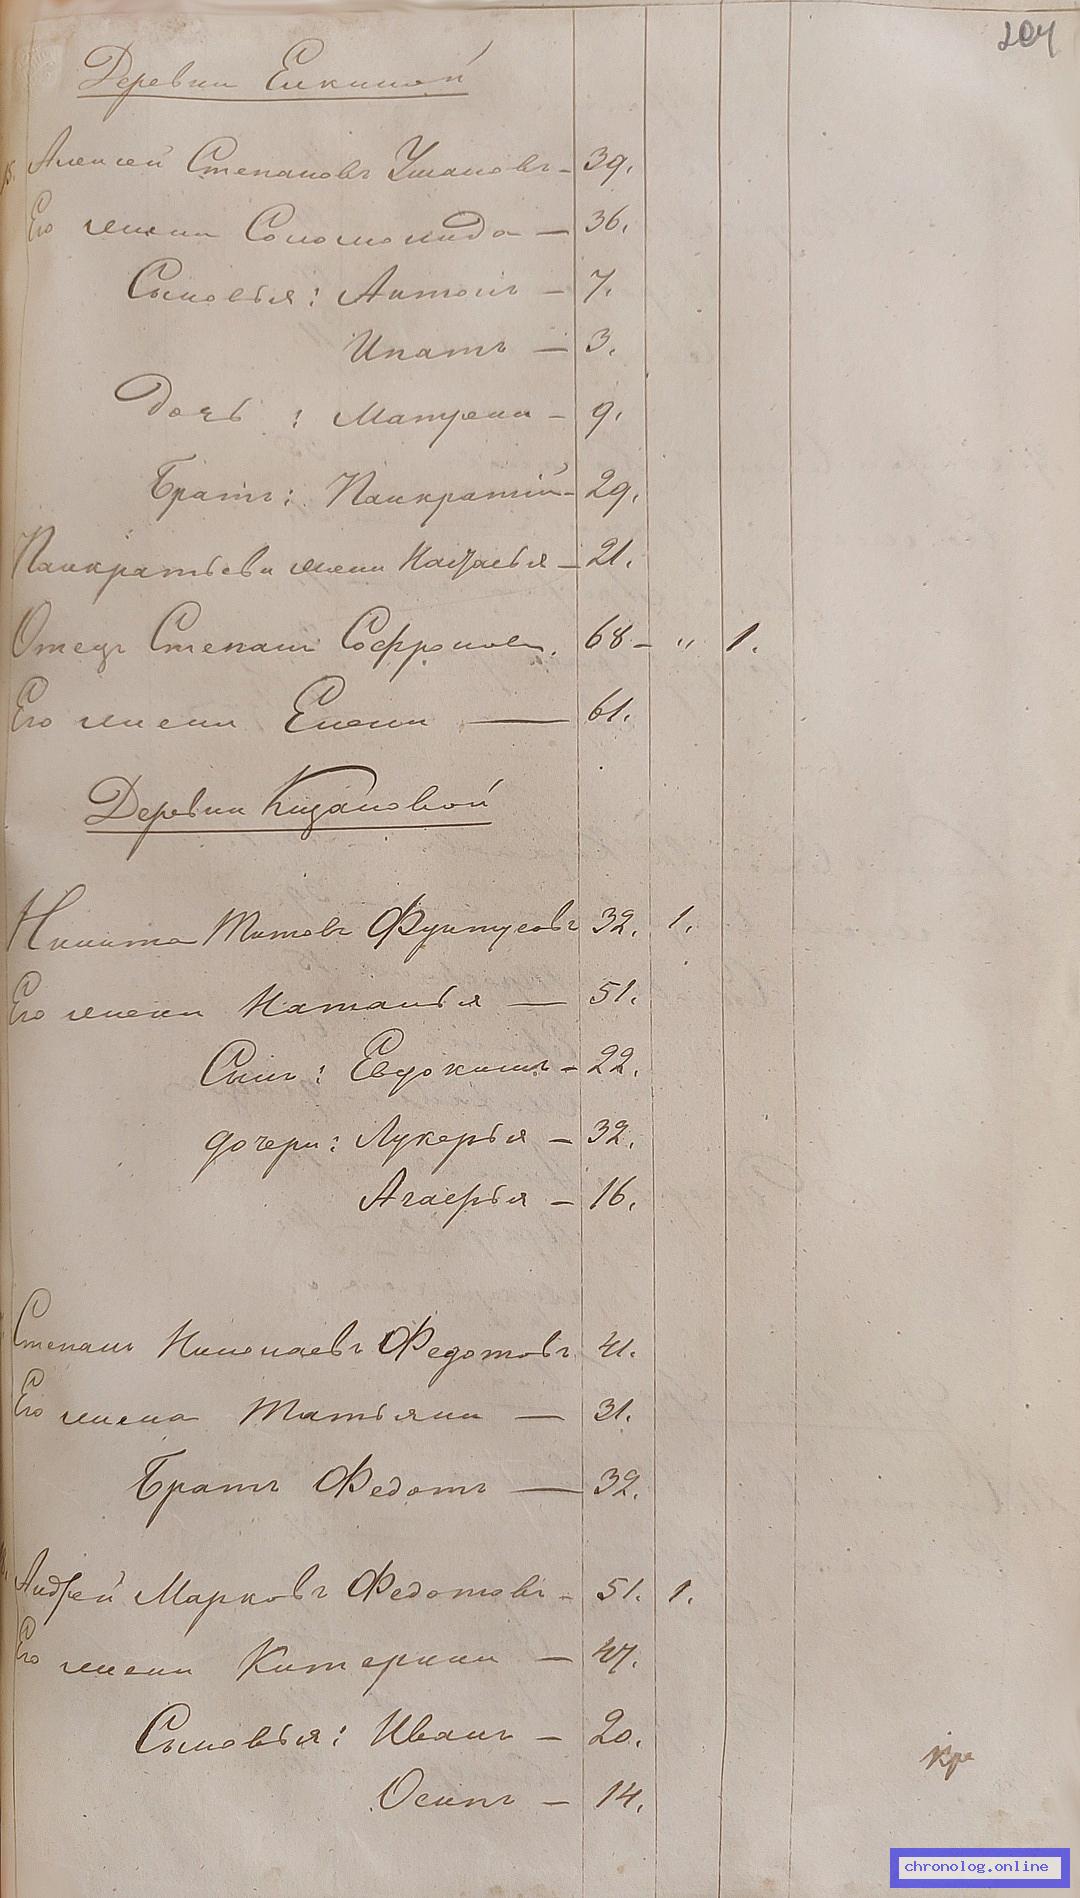 204
Деревни Елкиной
Алексей Степановъ Ушаковъ – 39.
Его жена Соломонида – 36.
Сыновья: Антонъ – 7.
Ипатъ – 3.
Дочь : Матрена – 9.
Братъ: Панкратій – 29.
Панкратьева жена Настасья – 21.
Отецъ Степанъ Софроновъ. 68 – „ 1.
Его жена Елена — 61.
Деревни Казаковой
Никита Титовъ Фунтусовъ 32. 1.
Его жена Наталья — 51.
Сынъ: Евдокимъ – 22.
дочери: Лукерья – 32.
Агафья – 16.
Степанъ Николаевъ Федотовъ 41.
Его жена Татьяна — 31.
Братъ Федотъ — 32.
Андрей Марковъ Федотовъ – 51. 1.
Его жена Катерина – 47.
Сыновья: Иванъ – 20.
Осипъ – 14.
chronolog.online